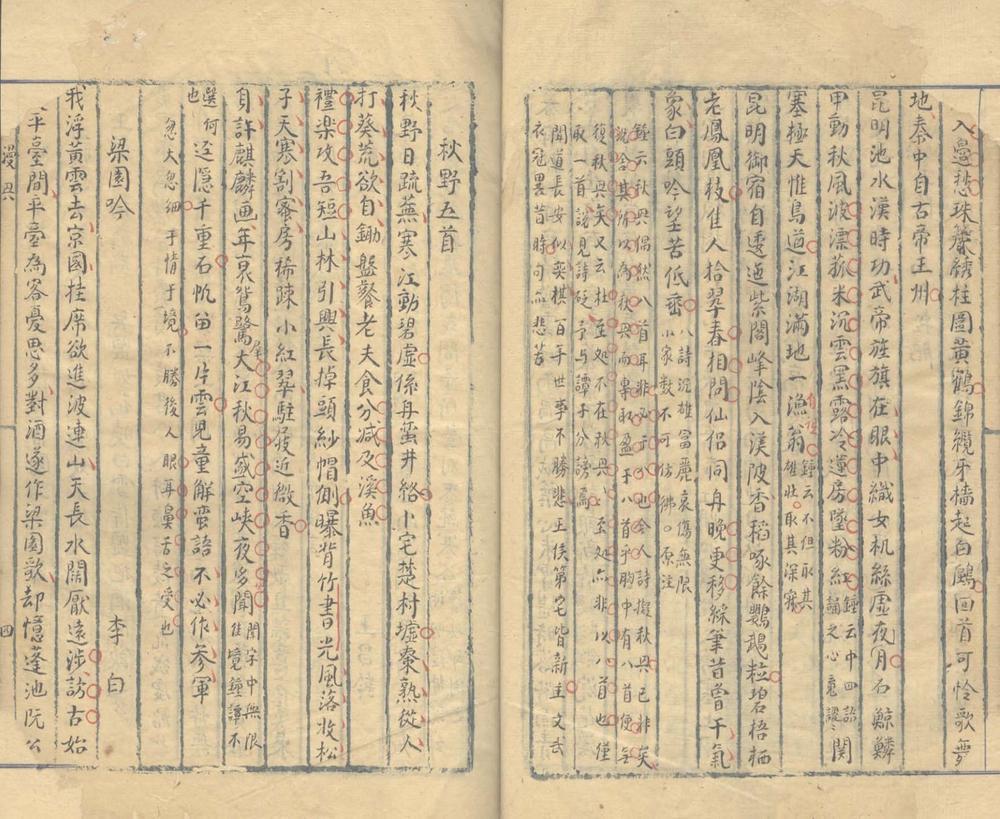 入邊愁珠簾綉柱圍黃鶴錦纜牙檣起白鷗回首可怜歌夢
地秦中自古帝王州
昆明池水漢時功武帝旌旗在眼中織女机絲虛夜月石鯨鱗
甲動秋風波漂菰米沉雲黑露冷蓮房墜粉紅鍾云中四語誦之心魂謖謖関
塞極天惟鳥道江湖滿地一漁翁鍾云不但取其雄壯取其深寂
昆明御宿自逶迤紫閣峰陰入渼陂香稻啄餘鸚鵡粒碧梧栖
老鳳凰枝佳人拾翠春相問仙侣同舟晚更移綵筆昔曾干氣
象白頭吟望苦低垂八詩沉雄冨麗哀傷無限小家数不可仿彿原注
鍾云秋興偶然八首耳非必于八也今人詩擬秋興已非矣
說舍其所以為秋興而專取盈于八首乎胸中有八首便無
復秋興矣又云杜至処不在秋興至処亦非以八首也僅
取一首說見詩砭予与譚子分謗焉
聞道長安似奕棋百年世事不勝悲王侯第宅皆新主文武
衣冠異昔時句亦悲苦
秋野五首
秋野日疏蕪寒江動碧虛係舟蛮井絡卜宅楚村墟棗熟從人
打葵荒欲自鋤盤餐老夫食分减及溪魚
禮楽攻吾短山林引興長掉頭紗帽側曝背竹書光風落收松
子天寒割蜜房稀踈小紅翠駐屐近微香
身許麒麟画年衰鴛鷺大江秋易盛空峡夜多聞聞字中無限佳境鍾譚不
選何也逕隱千重石帆留一片雲児童解蛮語不必作參軍
忽大忽細于情于境不勝後人眼耳鼻舌之受也
梁園吟 李白
我浮黃雲去京國挂席欲進波連山天長水闊厭遠涉訪古始
平臺間平臺為客憂思多對酒遂作梁園歌却憶蓬池阮公
四